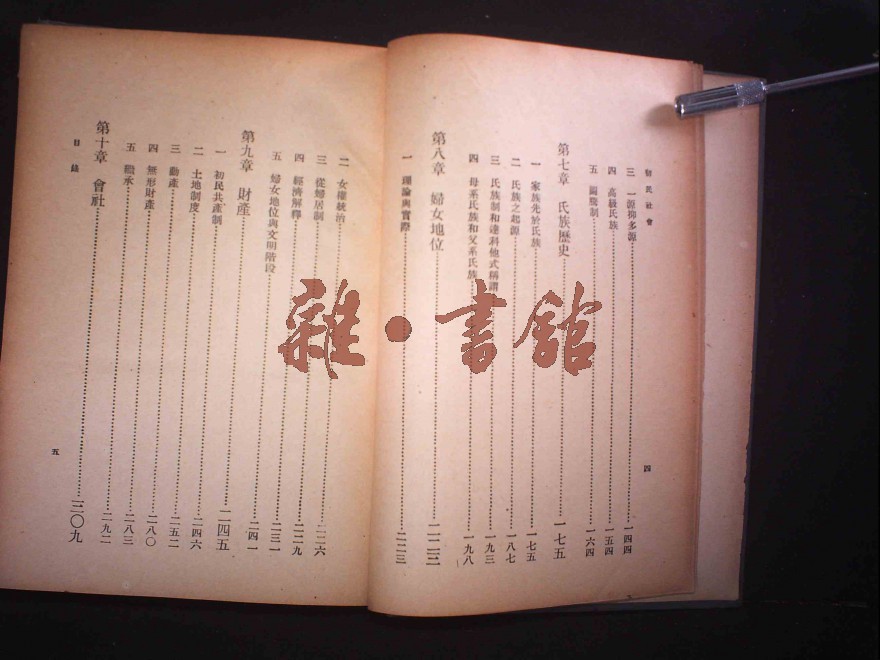 初民社會
三 一源抑多源 一四四
四 高級氏族 一五四
五 圖騰制 一六四
第七章 氏族歷史 一七五
一 家族先於氏族 一七五
二 氏族之起源 一八七
三 氏族制和達科他式稱謂 一九三
四 母系氏族和父系氏族 一九八
第八章 婦女地位 二二三
一 理論與實際 二二三
四
二 女權統治
三 從婦居制 二二六
四 經濟解釋 二二九
五 婦女地位與文明階段 二三一
第九章 財產 二四一
一 初民共產制 二四五
二 土地制度 二四六
三 動產 二五二
四 無形財產 二八〇
五 繼承 二八三
第十章 會社 二九二
三〇九
目錄
五
雜·書館